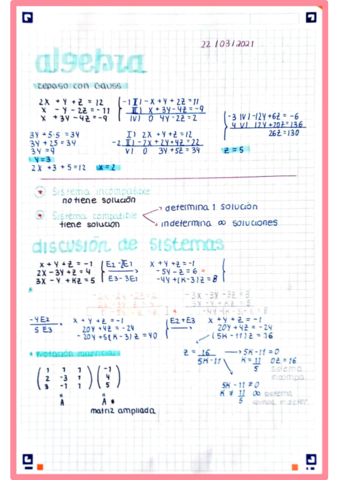 22/03/2021
algebra
repaso con Gauss
2x + y + z = 12
x - y - 2z = -11
x + 3y - 4z = -9
-1 II) -x + y + 2z = 11
III) x + 3y - 4z = -9
IV) 0 4y - 2z = 2
-3 IV) -12y + 6z = -6
4 V) 12y + 20z = 136
26z = 130
3y + 5·5 = 34
3y + 25 = 34
3y = 9
y = 3
I) 2x + y + z = 12
-2 II) -2x + 2y + 4z = 22
V) 0 3y + 5z = 34
z = 5
2x + 3 + 5 = 12
x = 2
Sistema incompatible
no tiene solución
Sistema compatible
tiene solución
determina 1 solución
indetermina ∞ soluciones
discusión de sistemas
x + y + z = -1
2x - 3y + z = 4
3x - y + kz = 5
E2 - 2E1
E3 - 3E1
x + y + z = -1
-5y - z = 6
-4y + (k-3)z = 8
-4E2
5E3
x + y + z = -1
20y + 4z = -24
-20y + 5(k-3)z = 40
E2 + E3
x + y + z = -1
20y + 4z = -24
(5k-11)z = 16
notación matricial
z = 16
5k-11
5k-11 = 0
k = 11 0z = 16
5
sistema
incompa.
( 1 1 1
2 -3 1
3 -1 1 )
( -1
4
5 )
A
A*
matriz ampliada
5k-11 ≠ 0
k ≠ 11
5
sistema